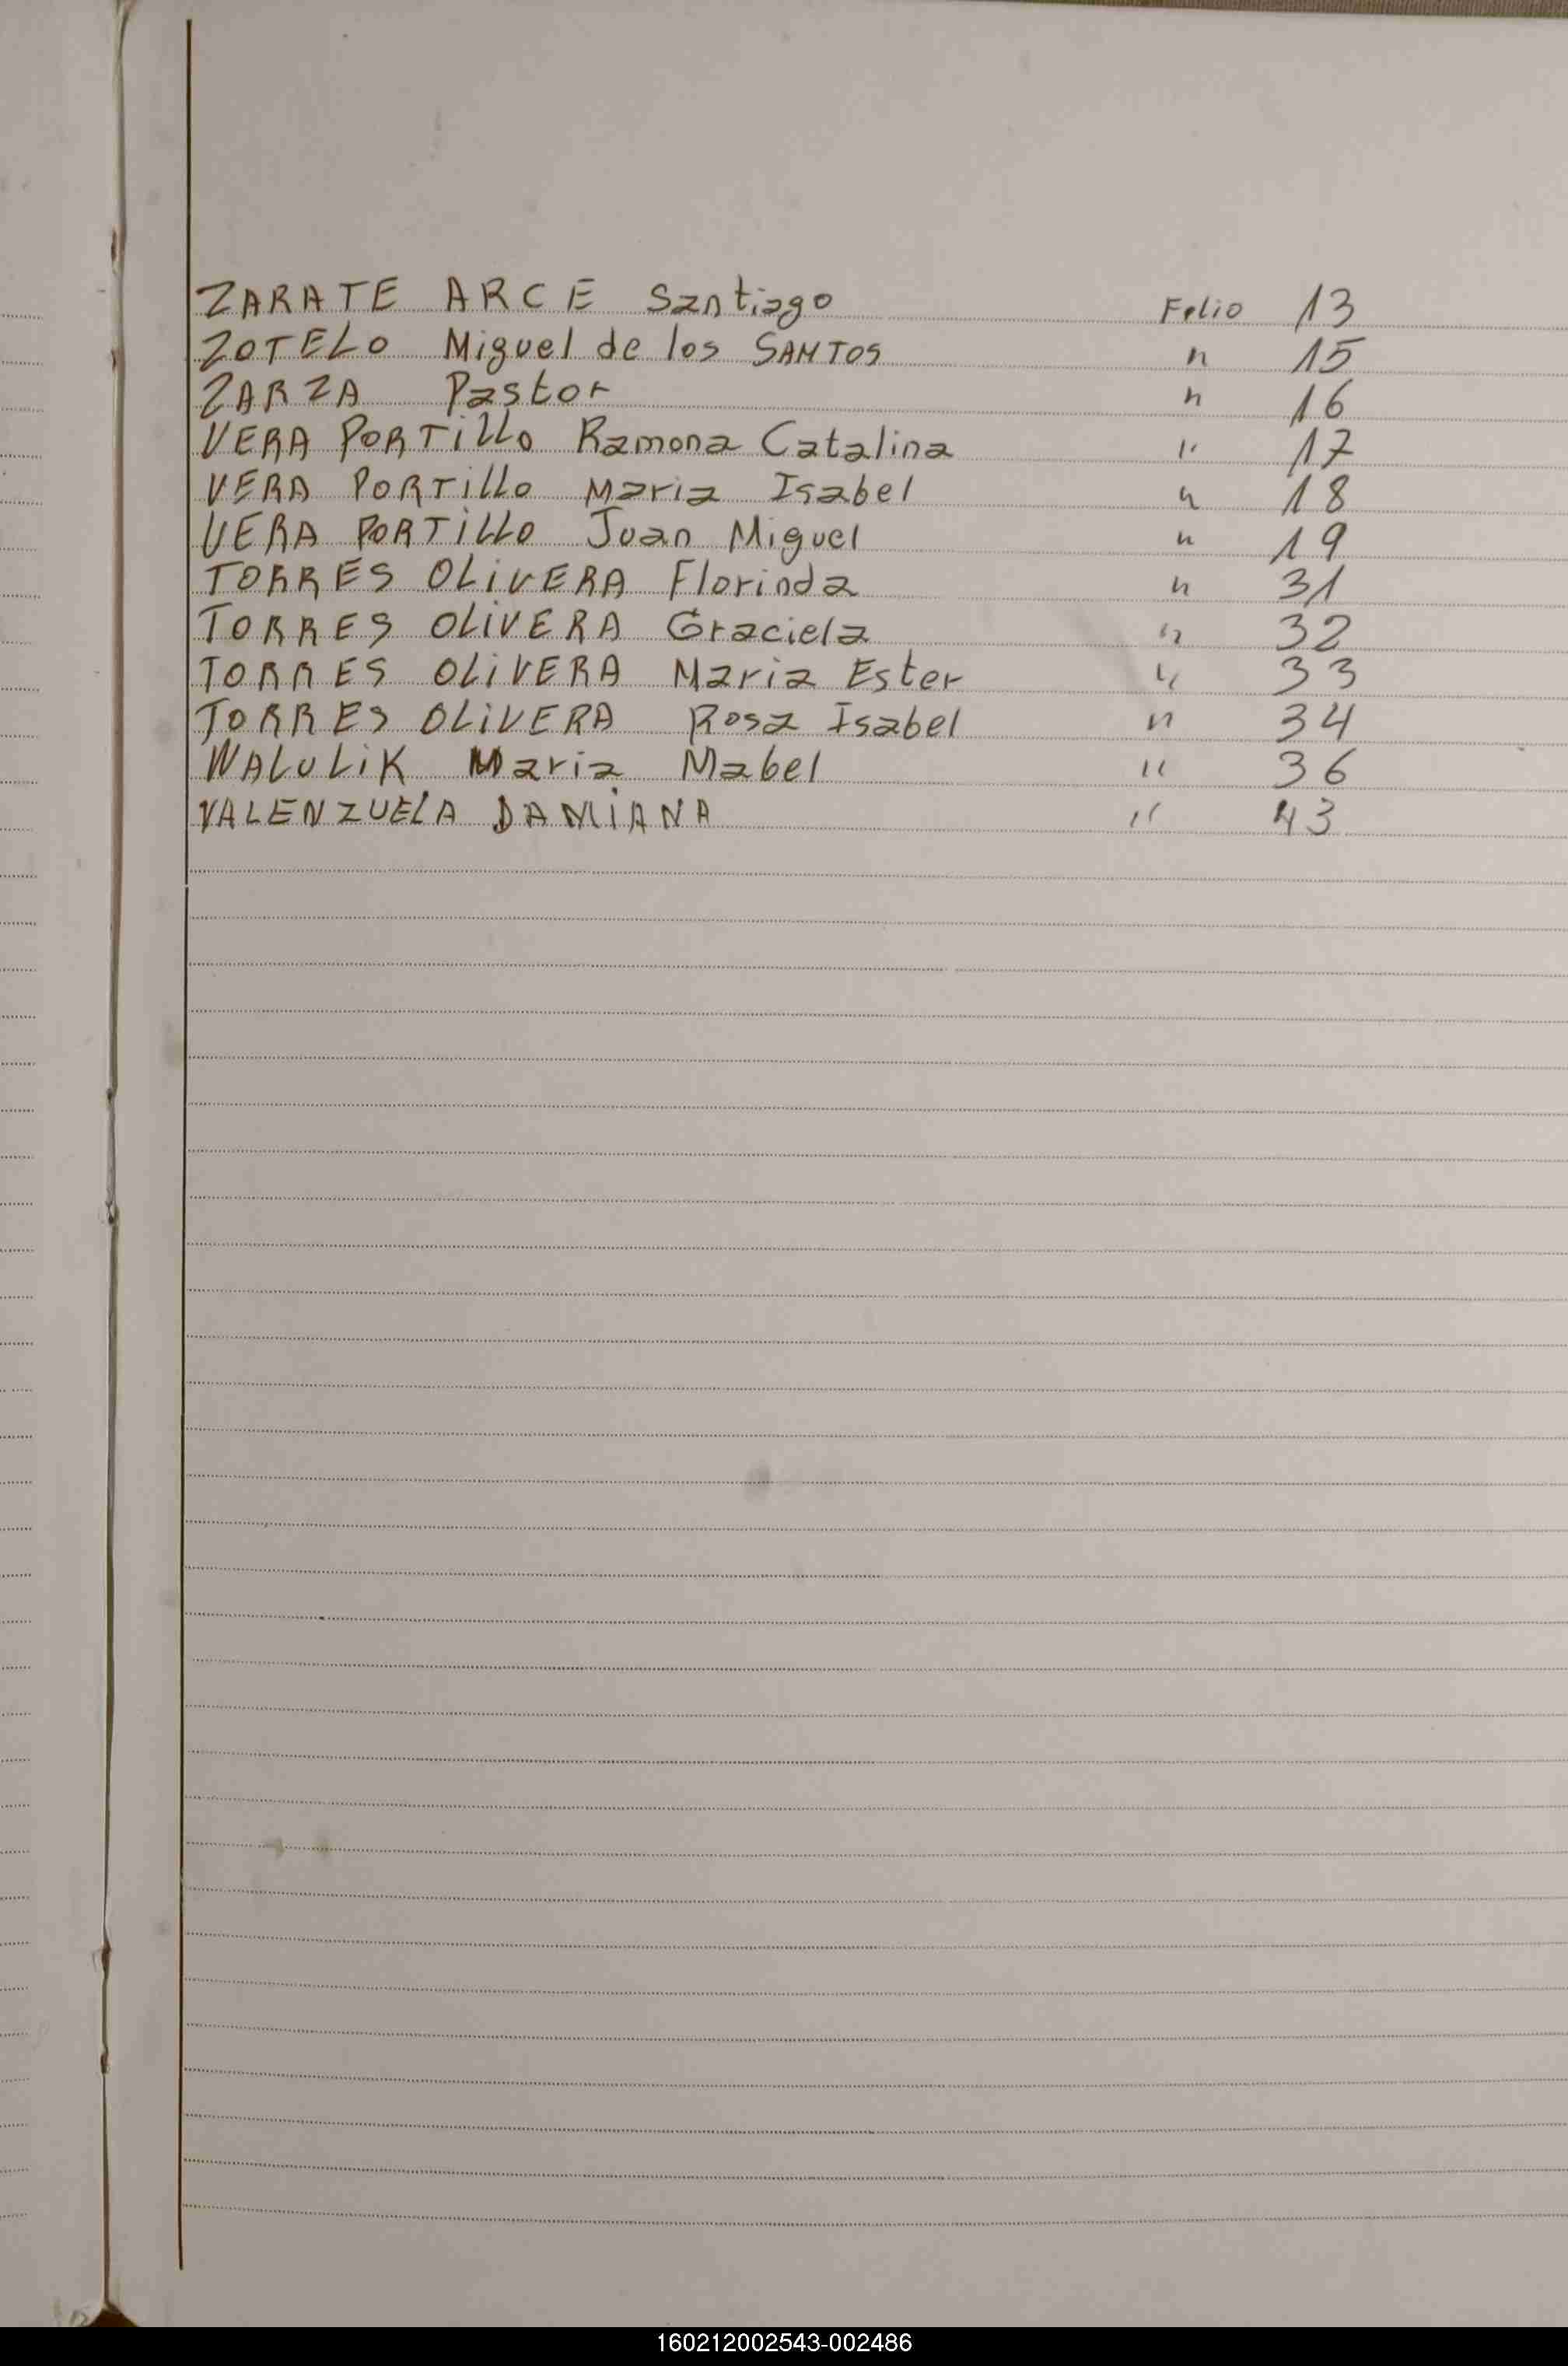 ZARATE ARCE Santiago Folio 13
ZOTELO Miguel de los SANTOS " 15
ZARZA Pastor " 16
VERA PORTILLO Ramona Catalina " 17
VERA PORTILLO Maria Isabel " 18
VERA PORTILLO Juan Miguel " 19
TORRES OLIVERA Florinda " 31
TORRES OLIVERA Graciela " 32
TORRES OLIVERA Maria Ester " 33
TORRES OLIVERA Rosa Isabel " 34
WALULIK Maria Mabel " 36
VALENZUELA DAMIANA " 43
160212002543-002486